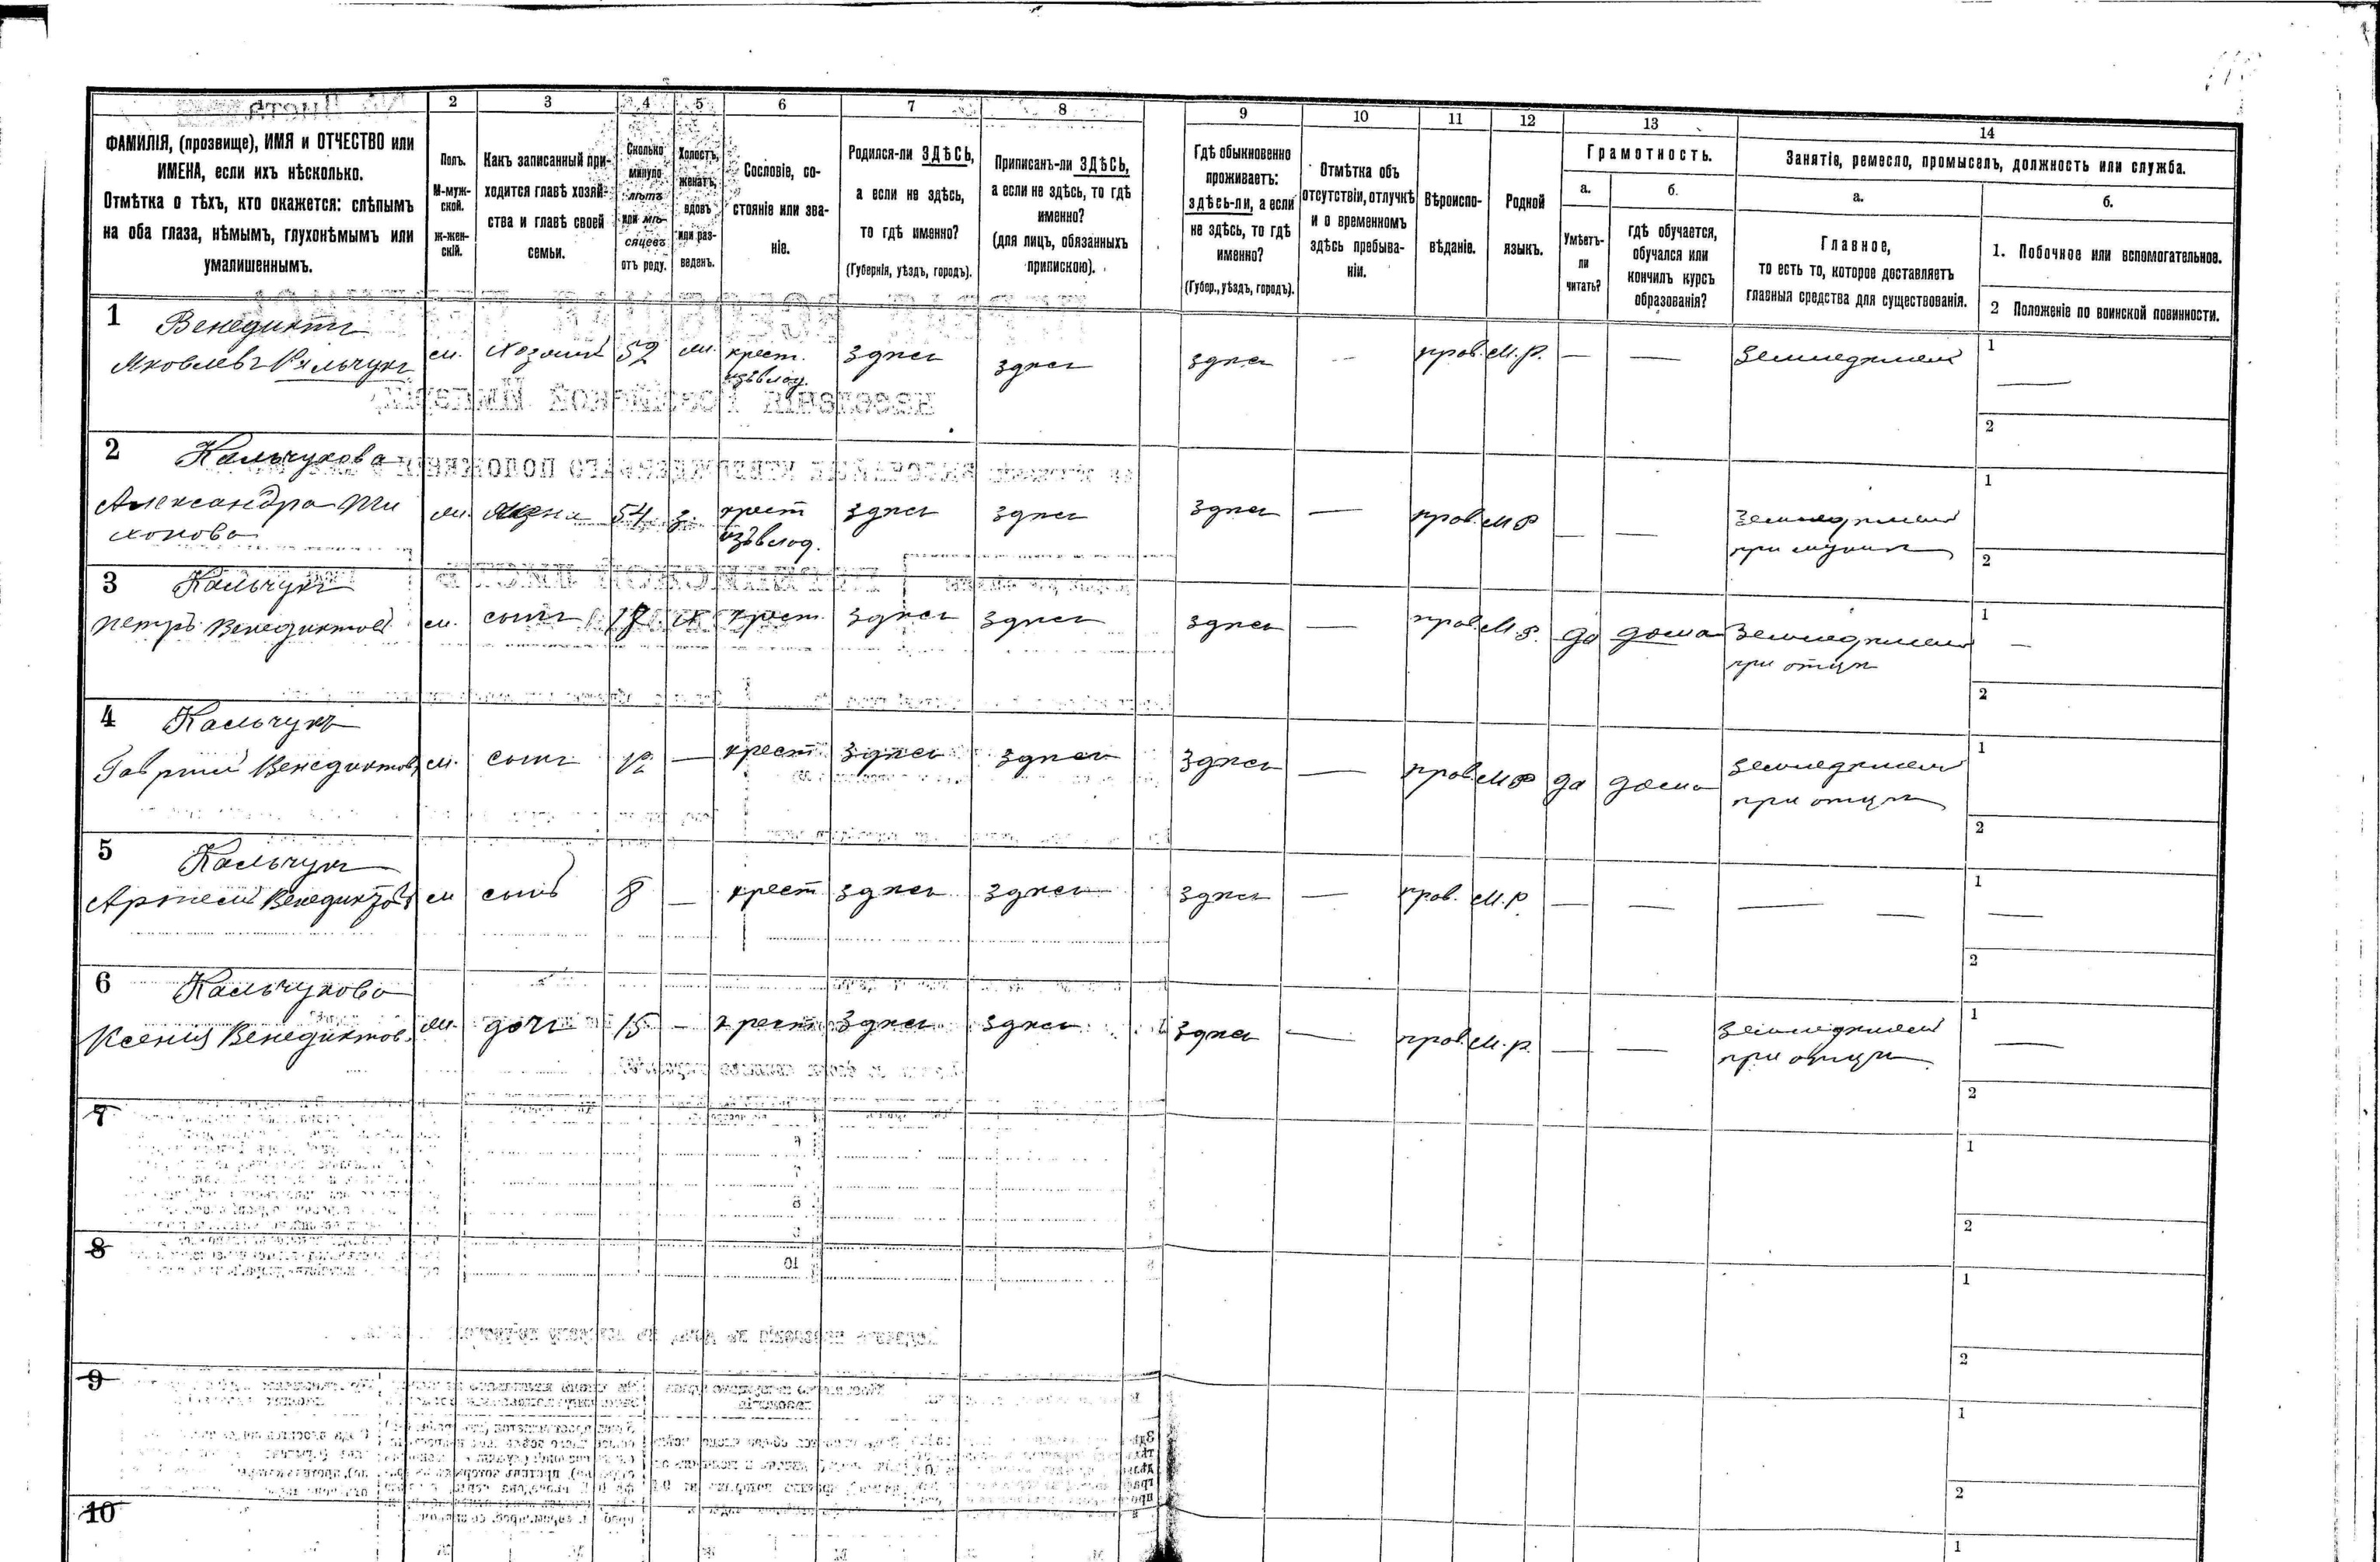 2 3 4 5 6 7 8 9 10 11 12 13 14
ФАМИЛІЯ, (прозвище), ИМЯ и ОТЧЕСТВО или
ИМЕНА, если ихъ нѣсколько.
Отмѣтка о тѣхъ, кто окажется: слѣпымъ
на оба глаза, нѣмымъ, глухонѣмымъ или
умалишеннымъ.
Полъ.
М-муж-
ской.
ж-жен-
скій.
Какъ записанный при-
ходится главѣ хозяй-
ства и главѣ своей
семьи.
Сколько
минуло
лѣтъ
или мѣ-
сяцевъ
отъ роду.
Холостъ,
женатъ,
вдовъ
или раз-
веденъ.
Сословіе, со-
стояніе или зва-
ніе.
Родился-ли ЗДѢСЬ,
а если не здѣсь,
то гдѣ именно?
(Губернія, уѣздъ, городъ).
Приписанъ-ли ЗДѢСЬ,
а если не здѣсь, то гдѣ
именно?
(для лицъ, обязанныхъ
припискою).
Гдѣ обыкновенно
проживаетъ:
здѣсь-ли, а если
не здѣсь, то гдѣ
именно?
(Губер., уѣздъ, городъ).
Отмѣтка объ
отсутствіи, отлучкѣ
и о временномъ
здѣсь пребыва-
ніи.
Вѣроиспо-
вѣданіе.
Родной
языкъ.
Грамотность.
а.
Умѣетъ-
ли
читать?
б.
гдѣ обучается,
обучался или
кончилъ курсъ
образованія?
Занятіе, ремесло, промыселъ, должность или служба.
а.
Главное,
то есть то, которое доставляетъ
главныя средства для существованія.
б.
1. Побочное или вспомогательное.
2 Положеніе по воинской повинности.
1 Венедиктъ
Яковлевъ Кальчукъ м. хозяинъ 52 ж. крест. здѣсь здѣсь здѣсь — прав. М.Р. — — земледѣліе 1 —
изъ влад.
2
2 Кальчукова
Александра Ти ж. жена 54 з. крест здѣсь здѣсь здѣсь — прав. М Р — — земледѣліе 1
хонова изъ влад. при мужѣ 2
3 Кальчукъ
Петръ Венедиктовъ м. сынъ 18 х крест здѣсь здѣсь здѣсь — прав. М Р. да дома земледѣліе 1 —
при отцѣ 2
4 Кальчукъ
Гаврiил Венедиктовъ м. сынъ 12 — крест здѣсь здѣсь здѣсь — прав. М Р да дома земледѣліе 1
при отцѣ 2
5 Кальчукъ
Артемій Венедиктовъ м сынъ 8 — крест здѣсь здѣсь здѣсь — прав. М.Р. — — — — 1 —
2
6 Кальчукова
Ксенія Венедиктов. ж. дочь 15 — крест здѣсь здѣсь здѣсь — прав. М.Р. — — земледѣліе 1 —
при отцѣ 2
7 1
2
8 1
2
9 1
2
10 1